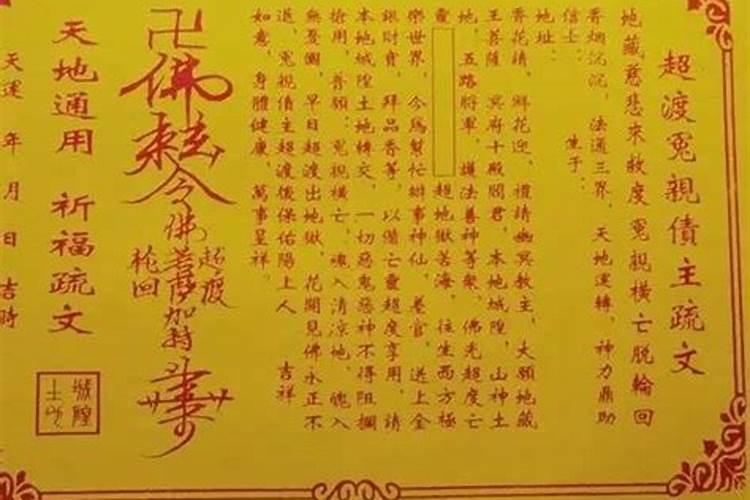 超渡冤親債主疏文
地藏慈悲來救度冤親橫亡脫輪回
香烟沉沉，法通三界，天地運轉，神力鼎助
信士： 生于：
地址：
香花請，鮮花迎，禮請幽冥教主，大願地藏
王菩薩 冥府十殿閻君，本地城隍，山神土
地，五路將軍，護法善神等衆，佛光超度亡
靈 超地獄苦海，往生西方極
樂世界，今爲幫忙辦事神仙，差官，送上金
銀財寶，拜品香等，以備亡靈超度享用，請
本地城隍土地轉交，一切惡鬼惡神不得阻攔
搶用，普願：冤親橫亡，魂入清凉地，魄入
無憂園，早日超渡出地獄，花開見佛永正不
退，冤親債主超渡後保佑陽上人 吉祥
如意，身體健康，萬事呈祥。
卍佛
令佛菩薩加持
超渡
輪回
天地通用 祈福疏文
城隍
土地
天運 年 月 日 吉時